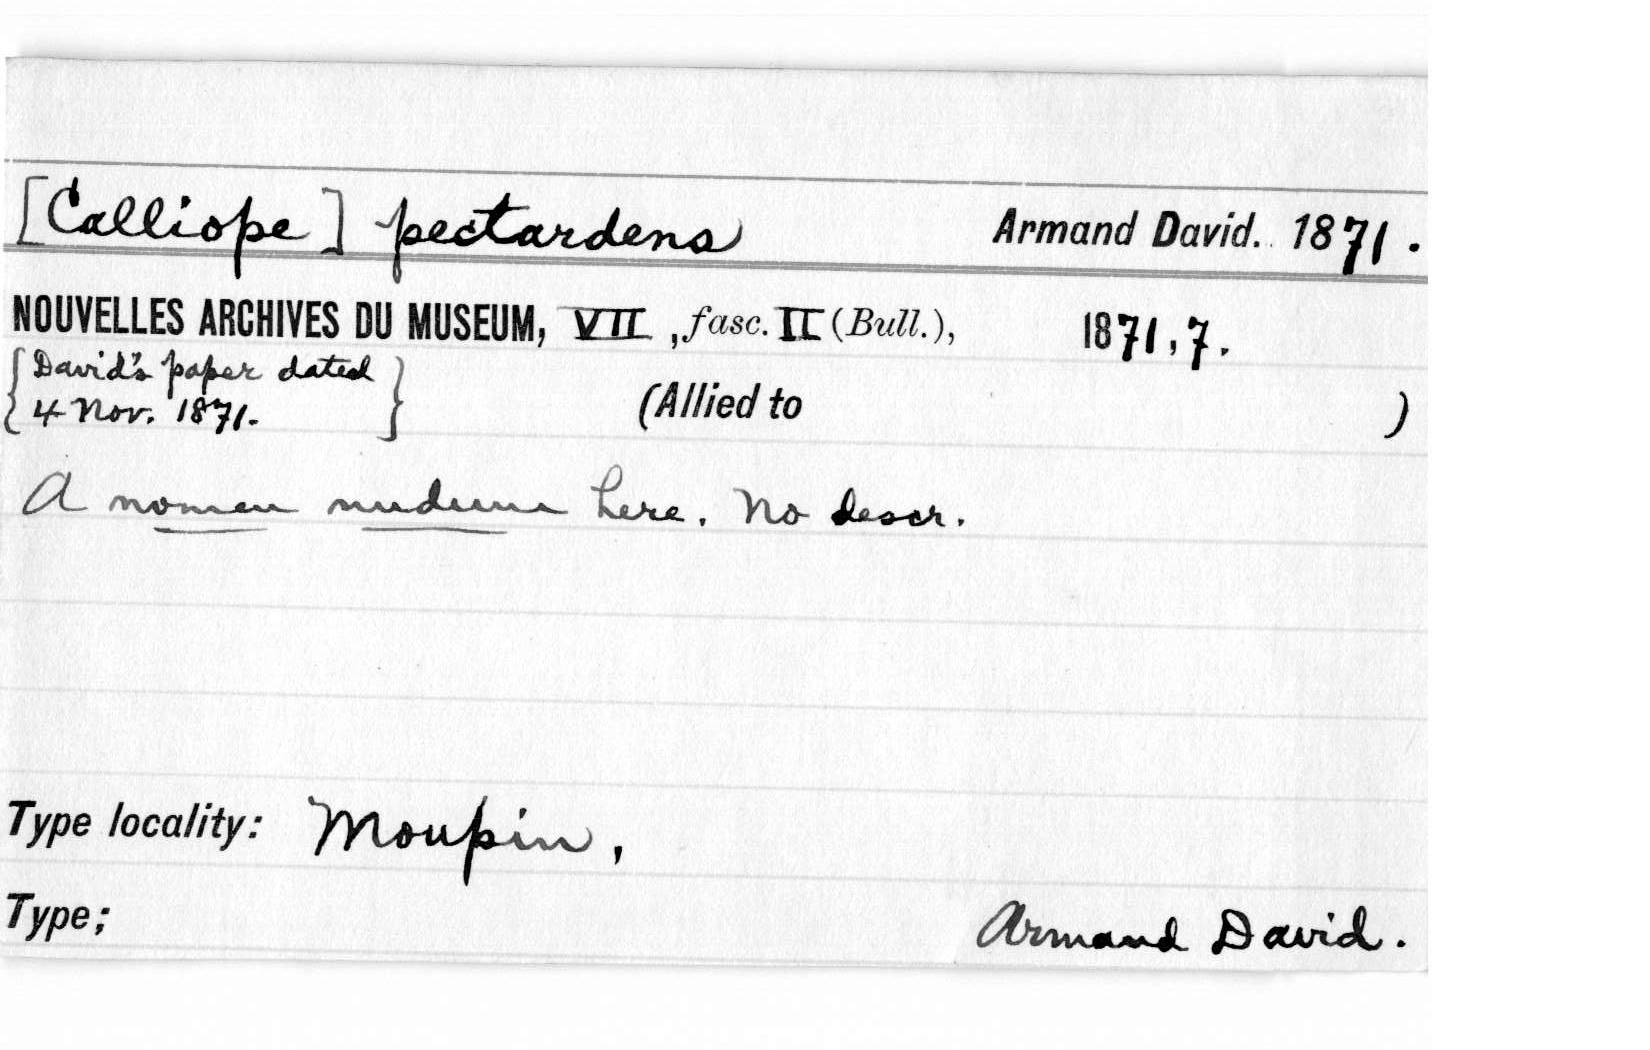 [Calliope] pectardens Armand David. 1871.
NOUVELLES ARCHIVES DU MUSEUM, VII, fasc. II (Bull.), 1871, 7.
{David's paper dated
4 Nov. 1871.} (Allied to )
A nomen nudum here. No descr.
Type locality: Moupin,
Type; Armand David.